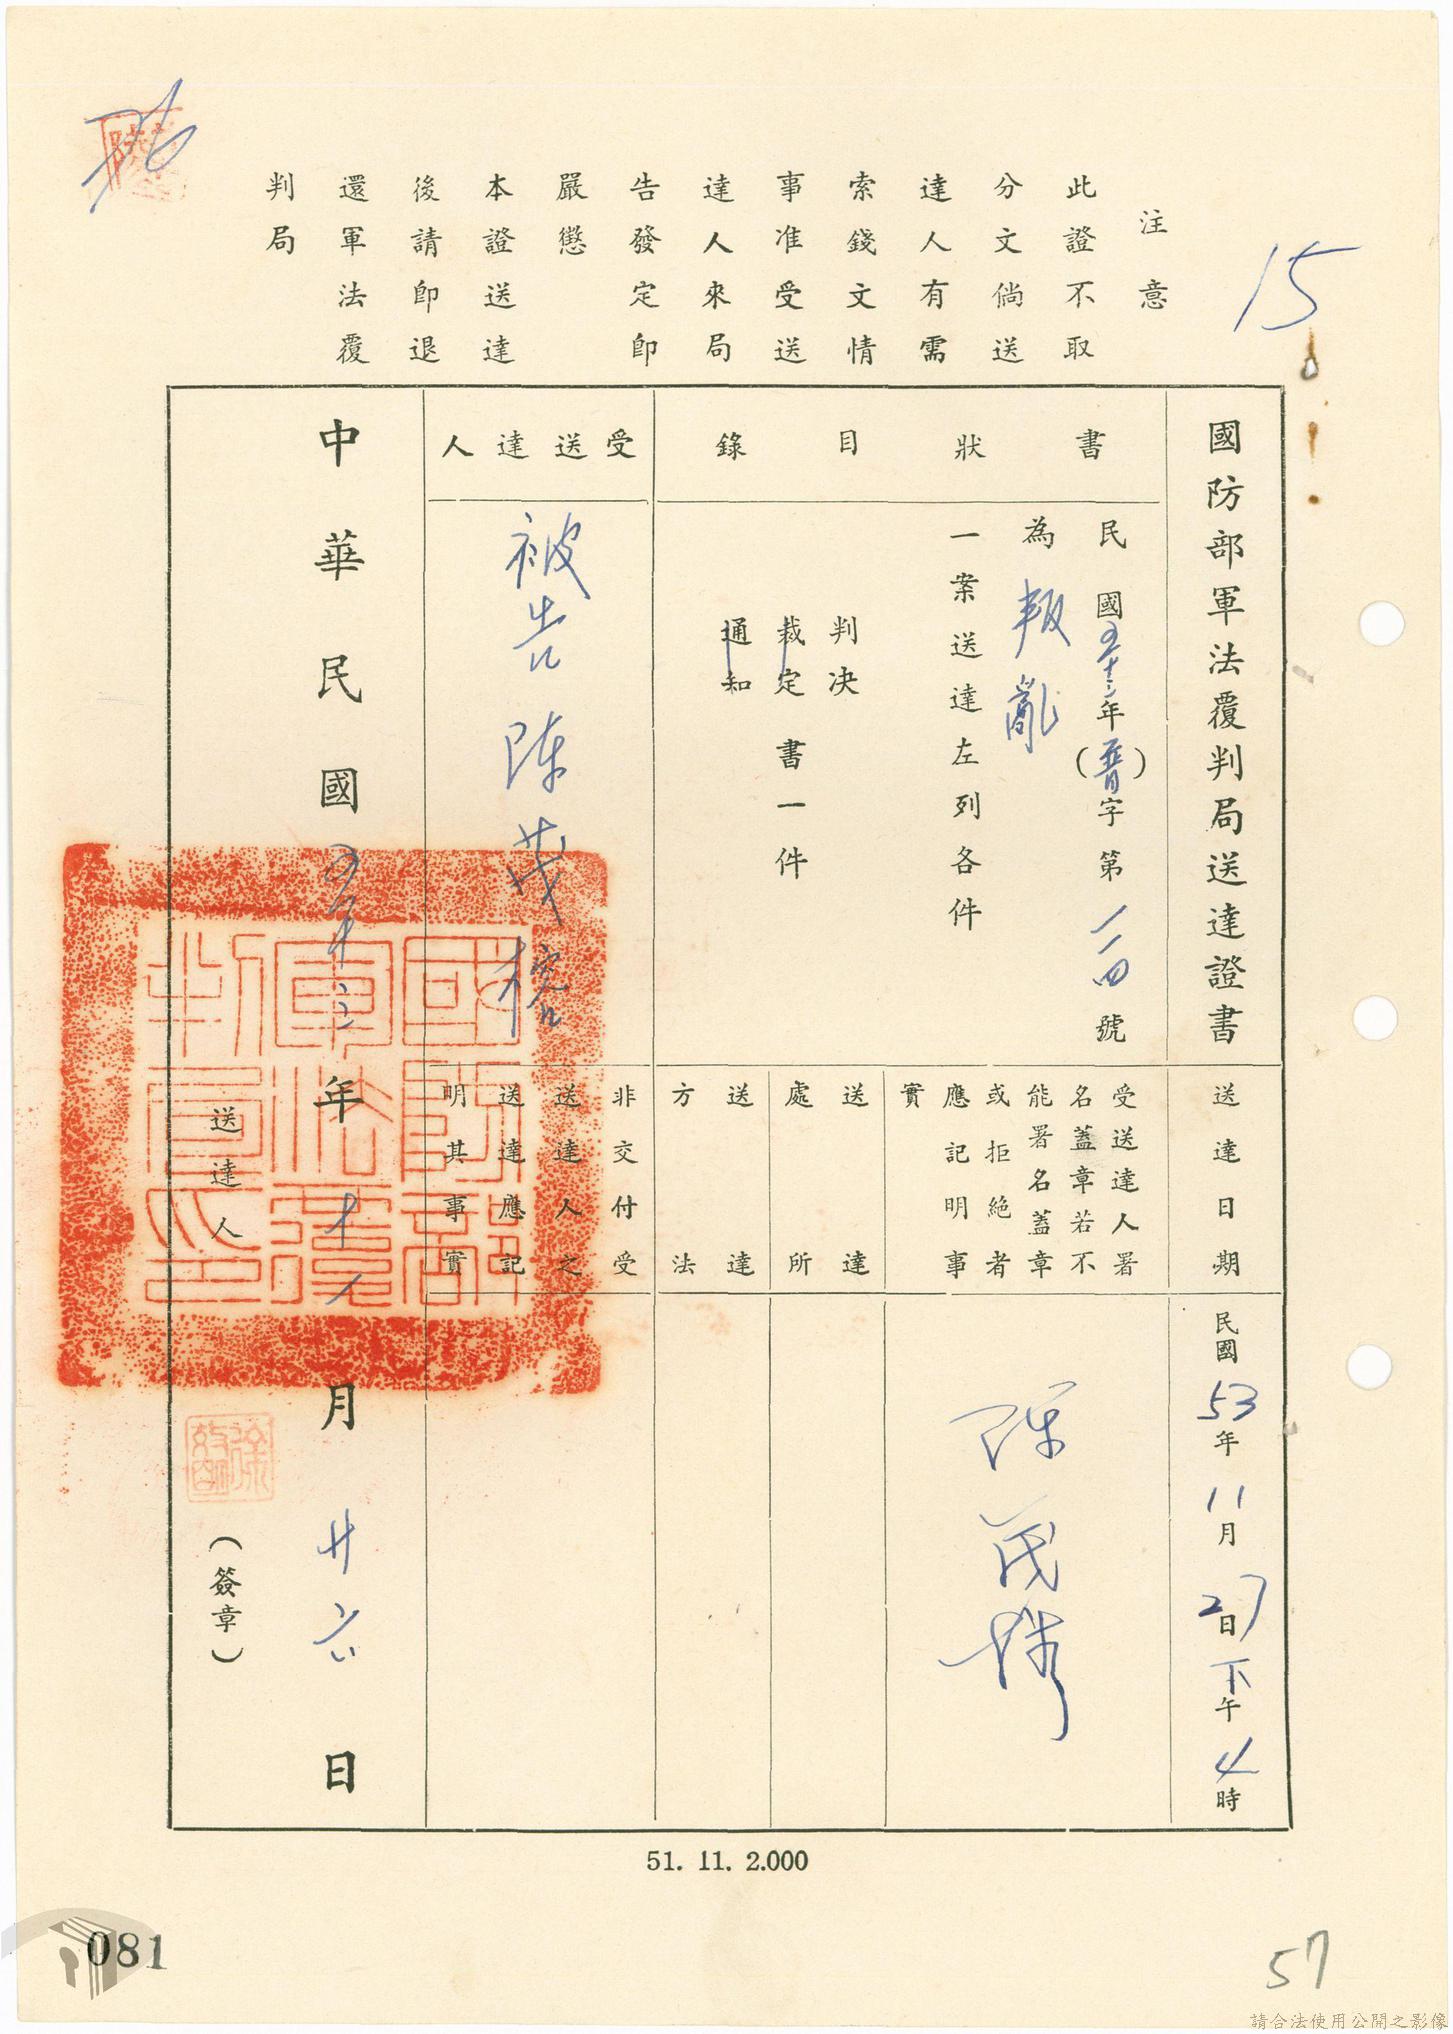 15
注意
此證不取
分文倘送
達人有需
索錢文情
事准受送
達人來局
告發定即
嚴懲
本證送達
後請即退
還軍法覆
判局
國防部軍法覆判局送達證書
書狀目錄
民國五十三年(普)字第一一四號
為叛亂
一案送達左列各件
判決
裁定書一件
通知
受送達人
被告陳茂榕
送達日期
民國53年11月27日下午4時
受送達人署
名蓋章若不
能署名蓋章
或拒絕者
應記明事
實
陳茂榕
送達
處所
送達
方法
非交付受
送達人之
送達應記
明其事實
中華民國五十三年十一月廿六日
送達人
(簽章)
國防部軍法覆判局印
51. 11. 2.000
081
57
請合法使用公開之影像